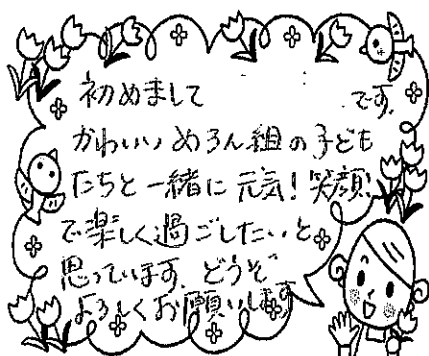 初めまして です。
かわいいめろん組の子ども
たちと一緒に元気！笑顔
で楽しく過ごしたいと
思っています。どうぞ
よろしくお願いします